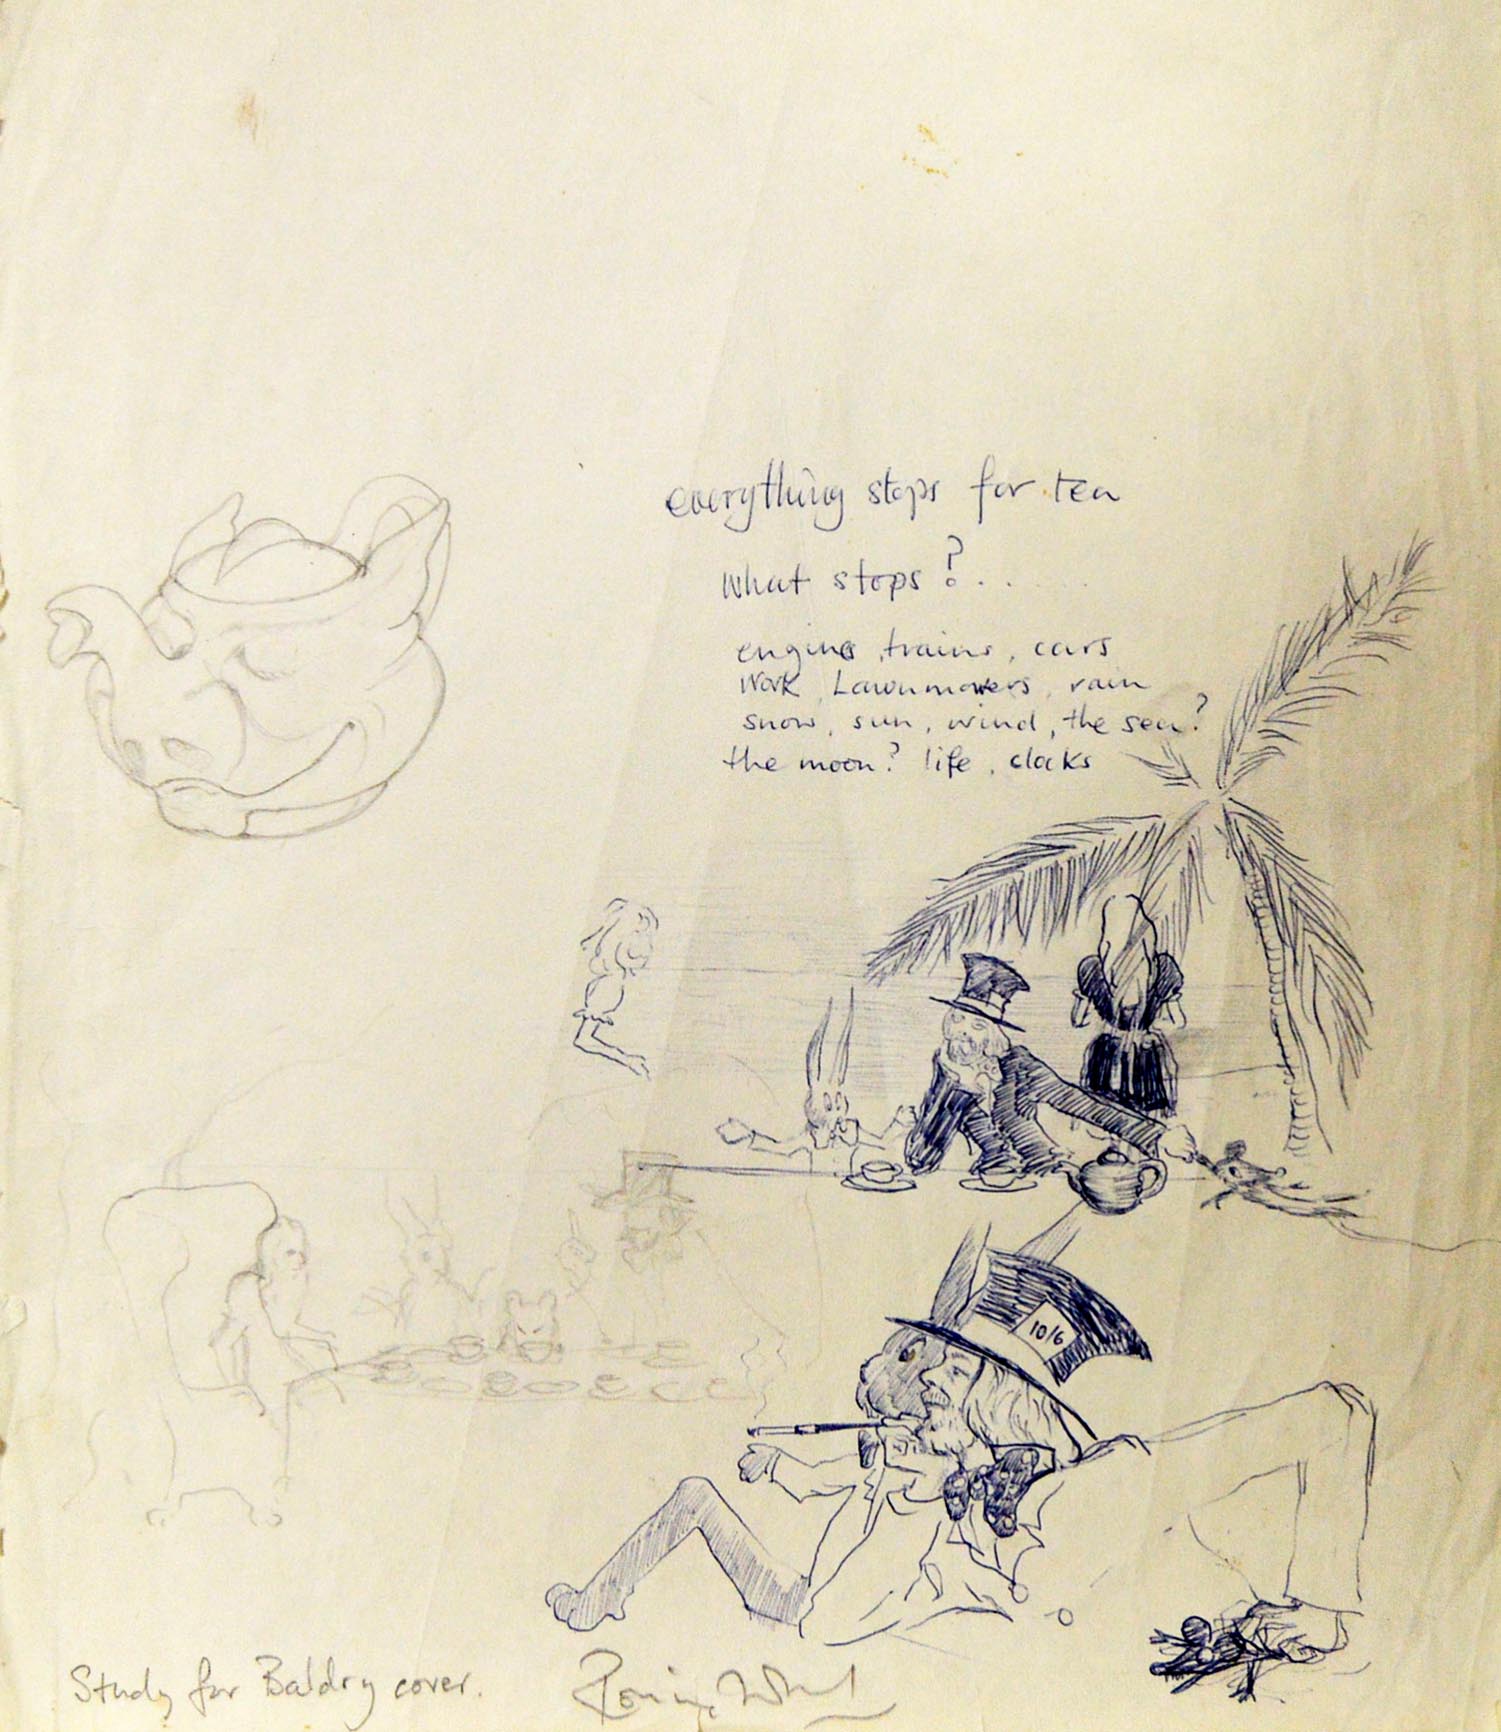 everything stops for tea
what stops?.....
engines, trains, cars
work, Lawnmowers, rain
snow, sun, wind, the sea?
the moon? life, clocks
10/6
Study for Baldry cover.